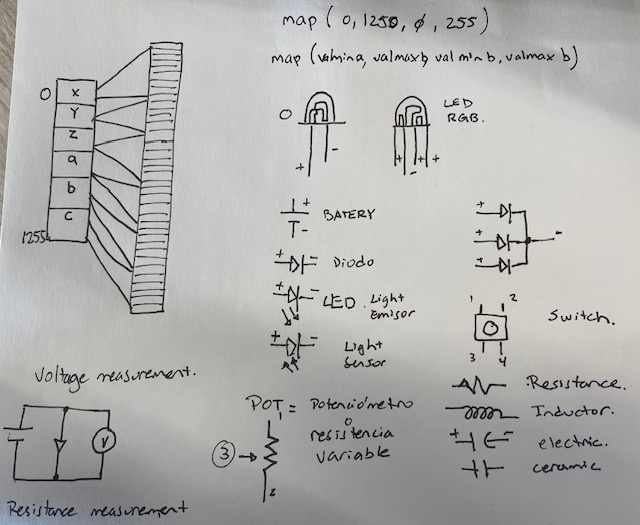 map (0, 1250, 0, 255)
map (valmina, valmaxb, valminb, valmax b)
0
x
Y
z
a
b
c
1255
0
+ -
LED
RGB.
+ - + +
+
-
BATERY
+ -
Diodo
+ -
LED. Light
Emisor
+ -
Light
Sensor
+
+
+
-
1 2
3 4
Switch.
Resistance.
Inductor.
+ -
electric.
ceramic
Voltage measurement.
V
Resistance measurement
POT = Potenciómetro
o
resistencia
variable
1
3
2